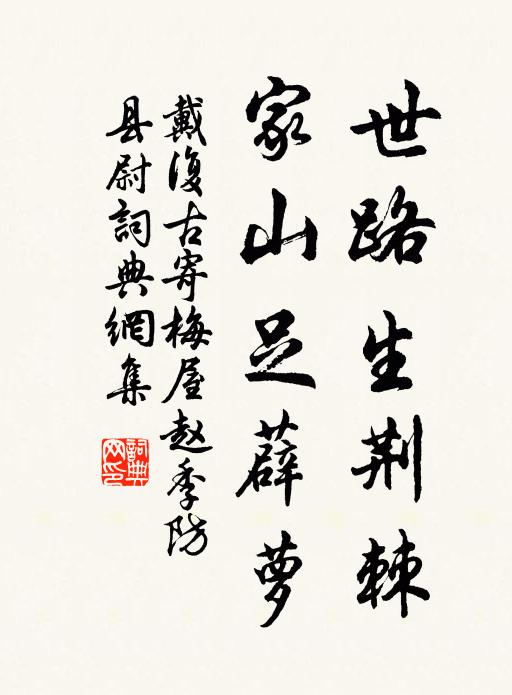 世路生荆棘
家山足薜萝
戴復古寄梅屋赵季防
县尉詞典網集
詞典
网印